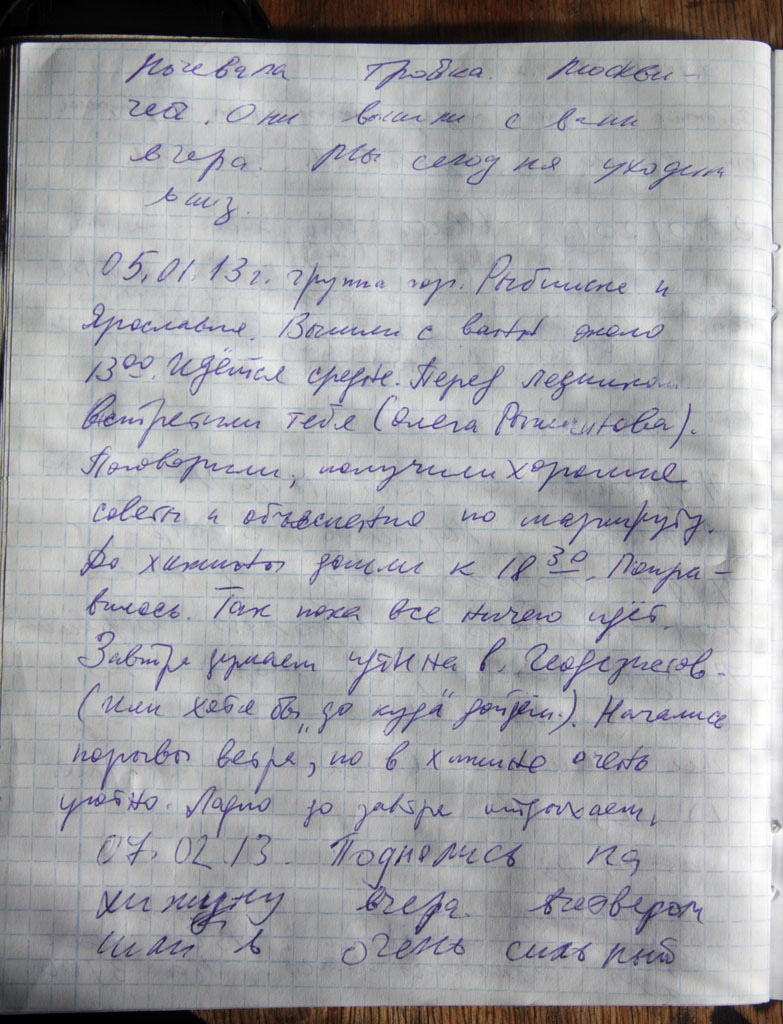 Ночевала тройка москви-
чей. Они вышли с вами
вчера. Мы сегодня уходим
вниз.
05.01.13г. группа гор. Рыбинска и
Ярославля. Вышли с ванн около
13⁰⁰. Идётся средне. Перед ледником
встретили тебя (Олега).
Поговорили, получили хорошие
советы и объяснения по маршруту.
До хижины дошли к 18³⁰. Понра-
вилось. Так пока все ничего идёт.
Завтра думаем идти на в. Геодезистов
(или хотя бы „до куда" дойдём.). Начались
порывы ветра, но в хижине очень
уютно. Ладно до завтра отдыхаем,
07.02.13. Поднялись на
хижину вчера. вчетвером
шли в очень сильный